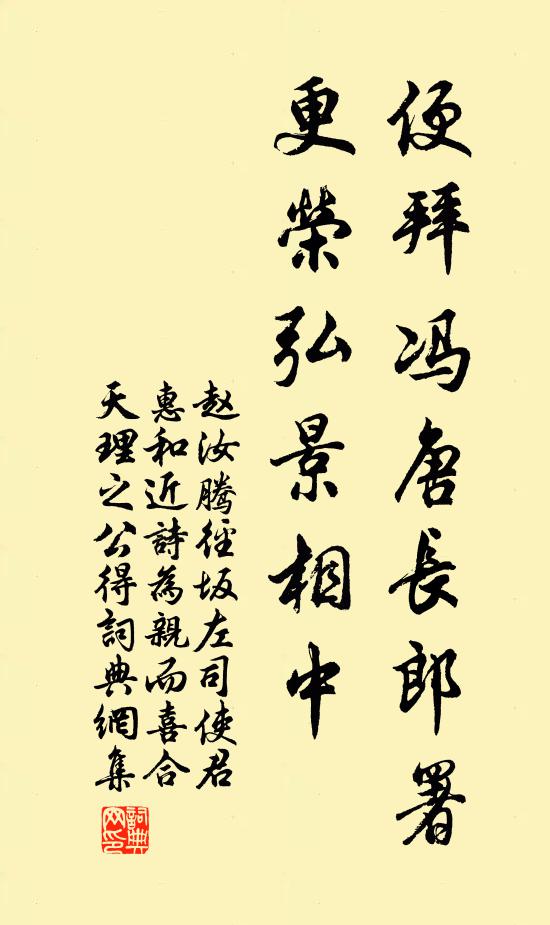 便拜冯唐長郎署
更榮弘景相中
赵汝腾徑坂左司使君
惠和近詩為親而喜合
天理之公得詞典網集
詞典網印